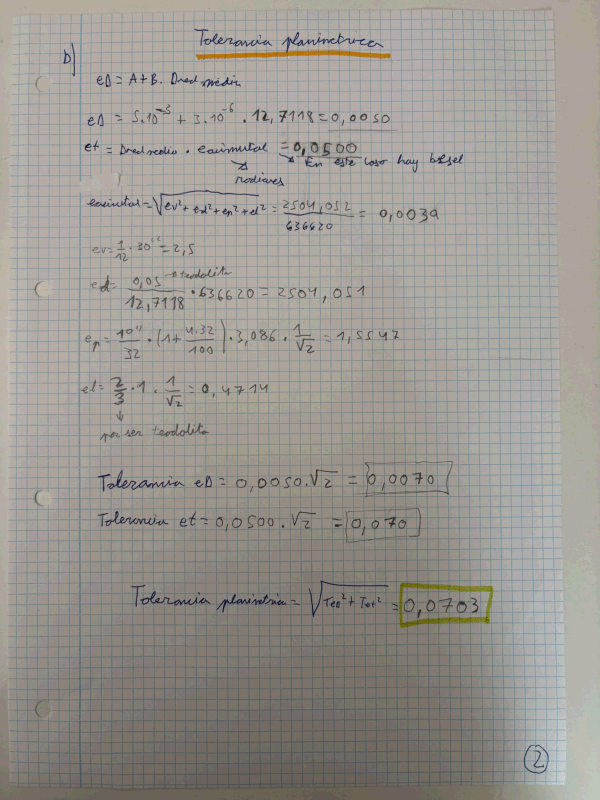 Tolerancia planimetrica
b)
eD = A+B. Dred media
eD = 5.10⁻³ + 3.10⁻⁶ . 12,7118 = 0,0050
et = Dred media . eacimutal = 0,0500
radianes
En este caso hay bessel
eacimutal = √ev² + ed² + ep² + el² = 2504,052 / 636620 = 0,0039
ev = 1/12 . 30ᶜᶜ = 2,5
ed = 0,05 → teodolito / 12,7118 . 636620 = 2504,051
ep = 10" / 32 . (1 + 4.32/100) . 3,086 . 1/√2 = 1,5547
el = 2/3 . 1 . 1/√2 = 0,4714
por ser teodolito
Tolerancia eD = 0,0050.√2 = 0,0070
Tolerancia et = 0,0500.√2 = 0,070
Tolerancia planimetrica = √TeD² + Tet² = 0,0703
2